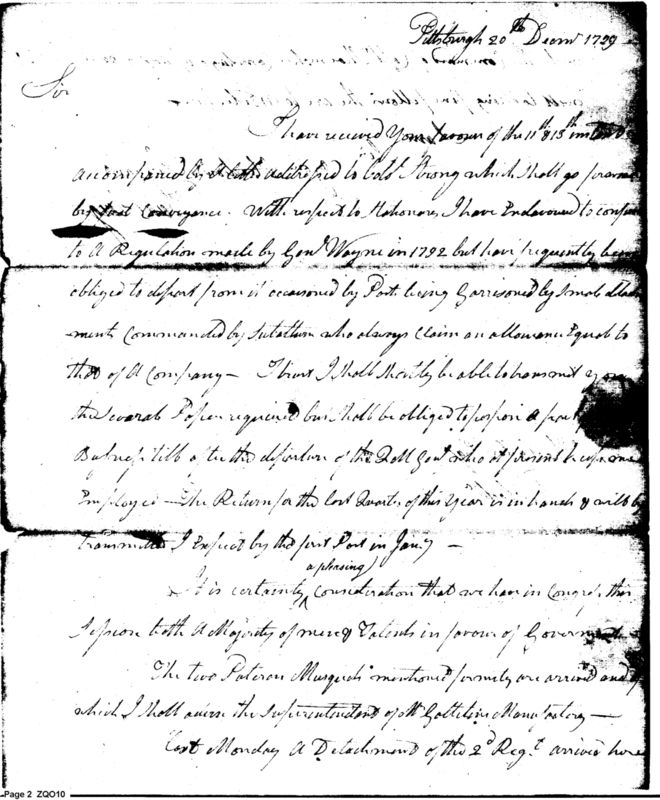 Pittsburgh 20th Decmr 1799
Sir
I have received Your favour of the 11th & 15th instant
accompanied by addressed to Colo Strong which shall go forward
by first Conveyance. With respect to Stationary I have Endavoured to
to A Regulation made by Genl Wayne in 1792 but have frequently been
obliged to depart from it occasioned by Posts being Garrisoned by small detach
ments Commanded by who always Claim an allowance Equal to
that of A Company — I trust I shall shortly be able to transmit you
the several Papers required but shall be obliged to postpone a part
Business till after the departure of the Genl who at present keeps me
Employed — The Return for the last Quarter of this Year is in hand & will be
transmitted I Expect by the first Post in Jany —
a pleasing
It is certainly ^ Consideration that we have in Congress this
Session both A Majority of men & Talents in favour of Government
The two Pattern Musquets mentioned formerly are arrived and of
which I shall advise the Superintendent of Mr Gallatins Manufactory —
Last Monday A Detachment of the 2d Regt arrived here
Page 2 ZQO10